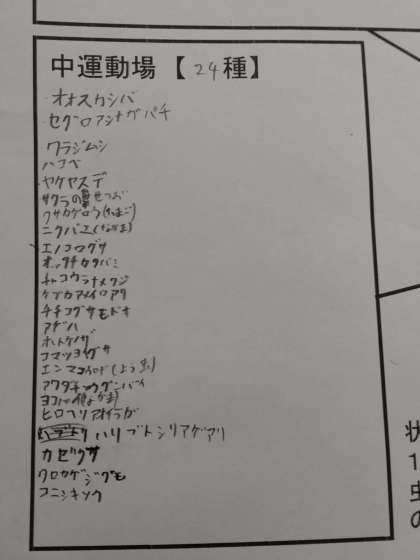 中運動場【24種】
オオスカシバ
セグロアシナガバチ
ワラジムシ
ハコベ
ヤケヤスデ
サクラの
クサカゲロウ(たまご)
ニクバエ(なかま)
エノコログサ
オッタチカタバミ
チャコウラナメクジ
ケブカアメイロアリ
チチコグサモドキ
アゲハ
ホトケノザ
コマツヨイグサ
エンマコオロギ(よう虫)
アワダチソウグンバイ
ヨコバイ(なかま)
ヒロヘリアオイラガ
ハリブトシリアゲアリ
カゼクサ
クロカゲジグモ
コニシキソウ
状
1
虫
の